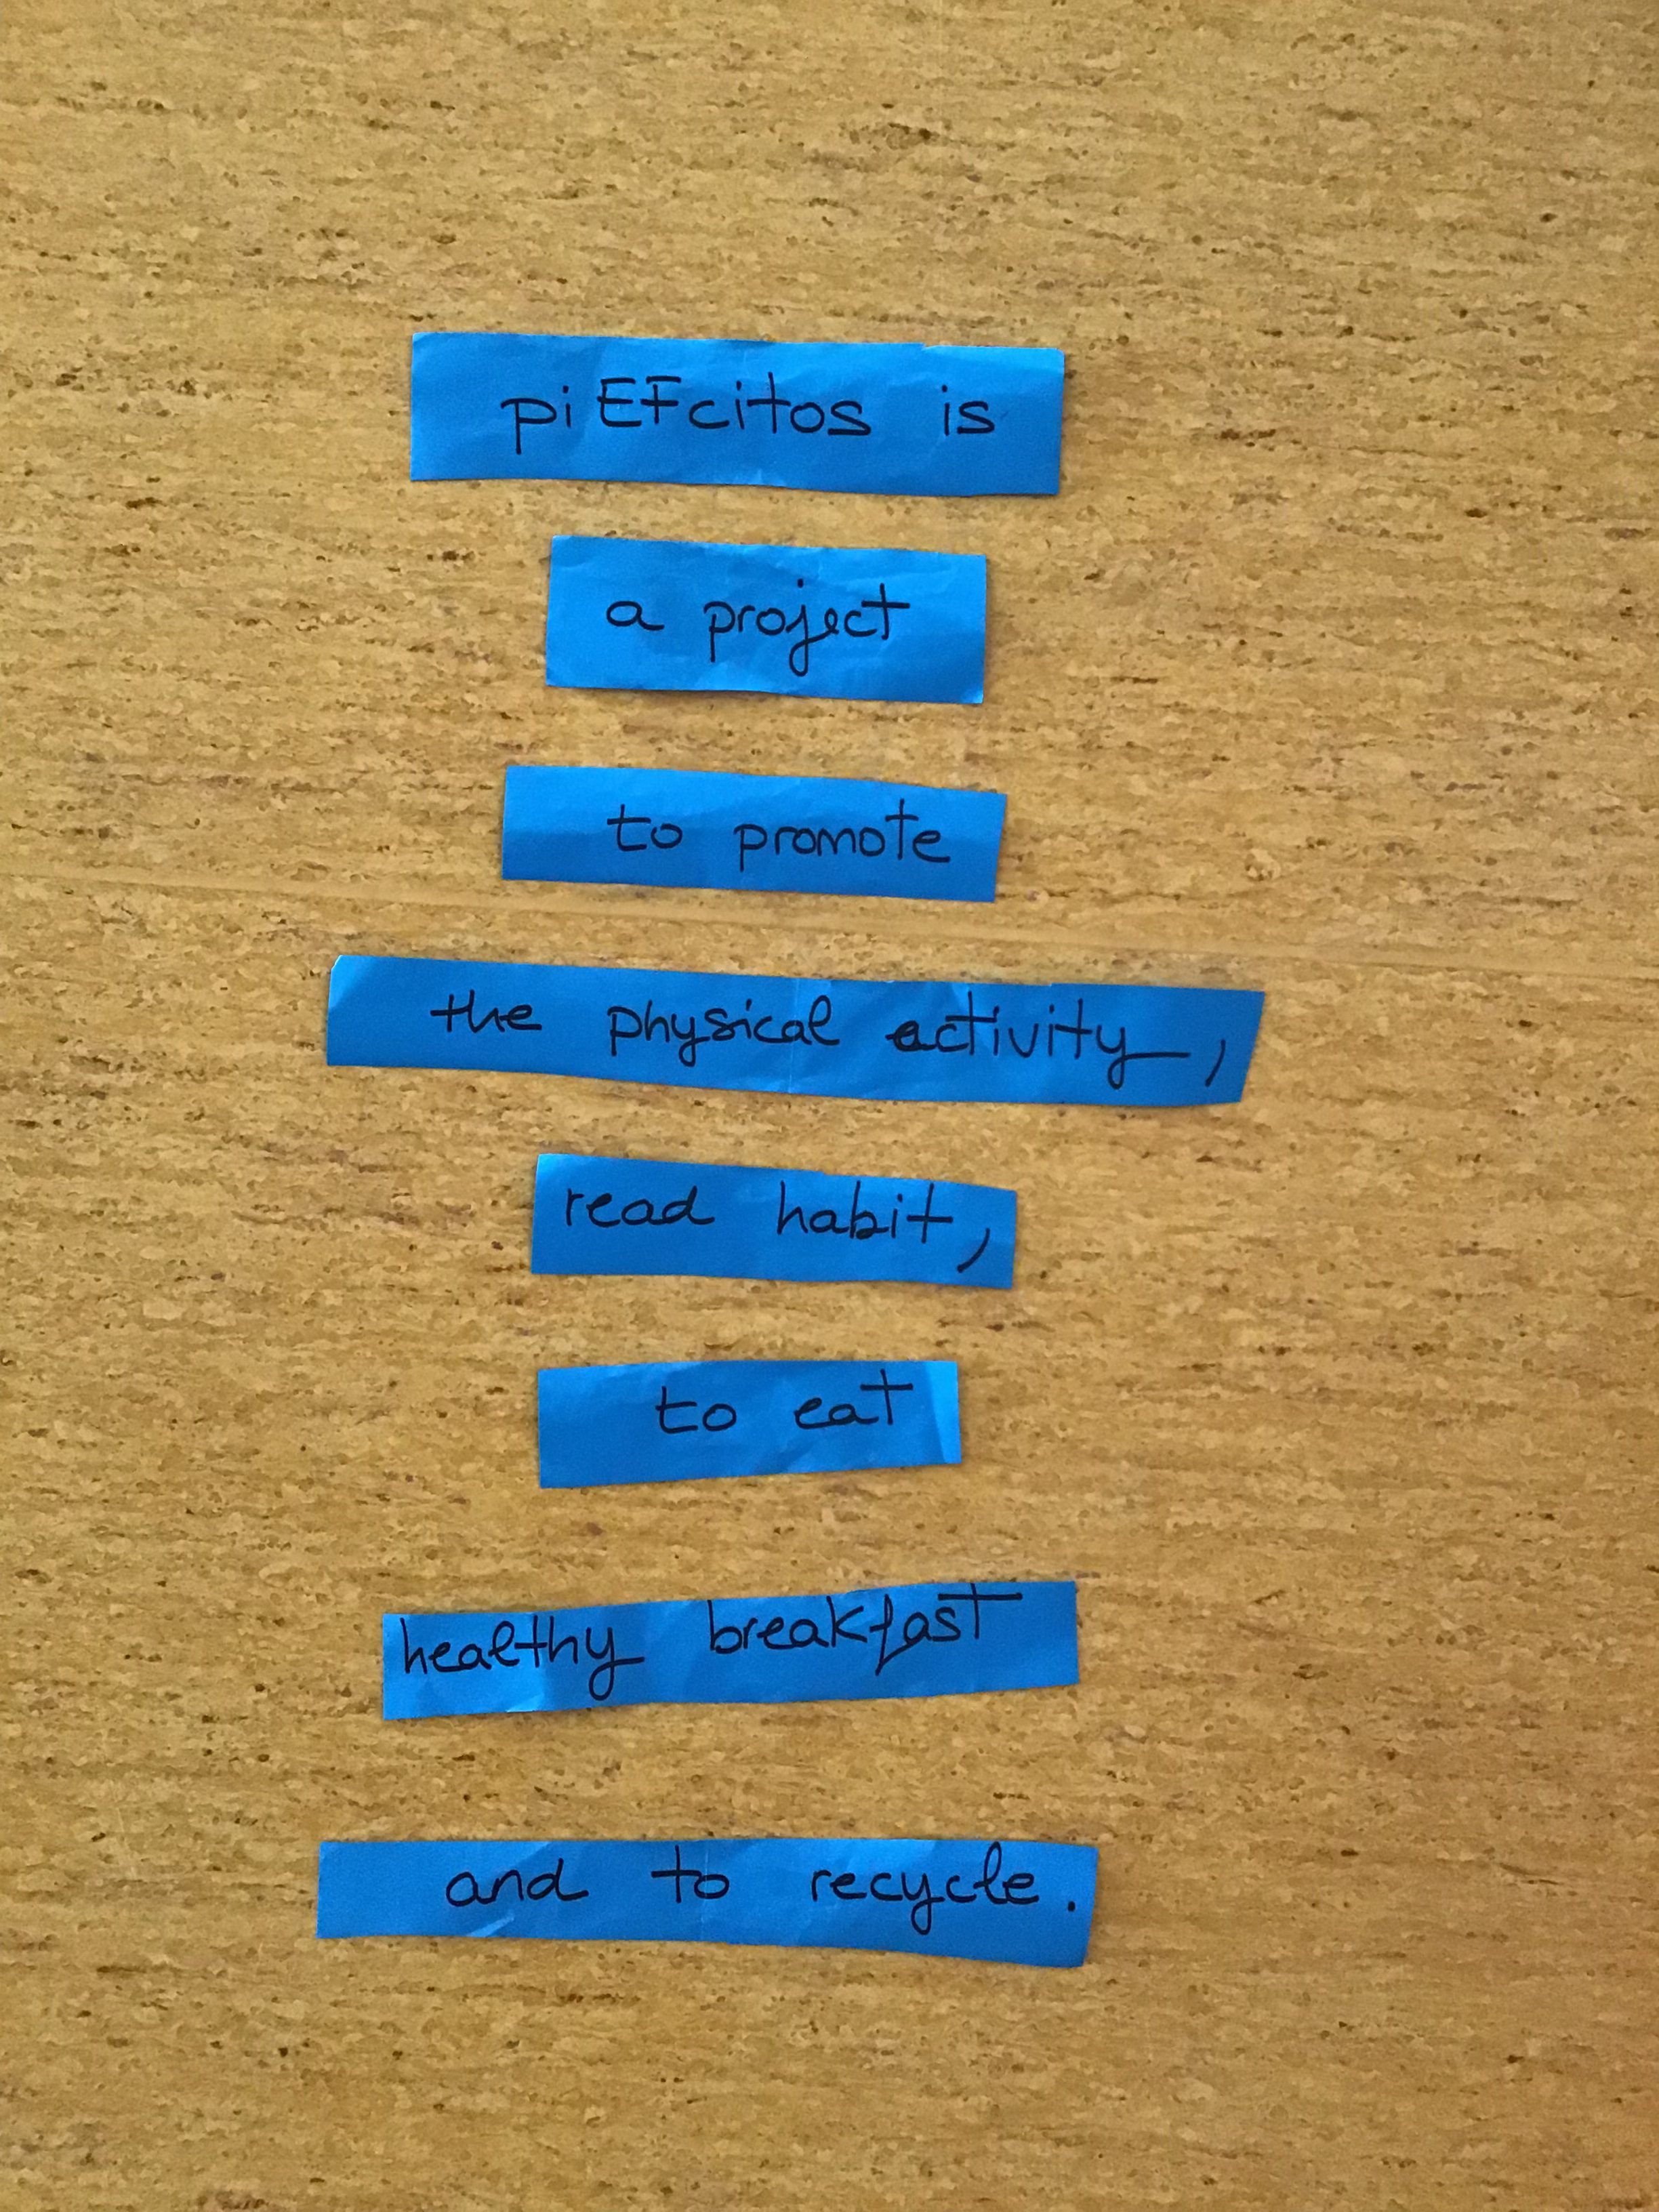 piEFcitos is
a project
to promote
the physical activity,
read habit,
to eat
healthy breakfast
and to recycle.